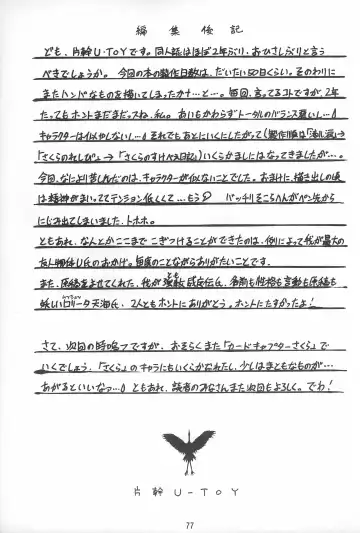 編集後記
ども、片幹U-TOYです。同人誌はほぼ2年ぶり、おひさしぶりと言う
べきでしょうか。今回の本の製作日数は、だいたい50日くらい。そのわりに
またハンパなものを描いてしまったカナ…と…。毎回、言ってるコトですが、2年
たってもホントまだまだっスね、私。あいもかわらずトータルのバランス悪いし…
キャラクターは似やしないし…。それでもあとにいくにしたがって(製作順は
『さくらのれしぴ』→『さくらのすけべえ日記』)いくらかましにはなってきましたが…。
今回、なにより苦しんだのは、キャラクターが似ないことでした。おまけに、描き出しの頃
は精神がまいっててテンション低くって…もう バッチリそこらへんがペン先から
にじみ出てしまいました、トホホ。
ともあれ、なんとかここまでこぎつけることができたのは、例によって我が最大の
友人 氏のおかげ。毎度のことながらありがたいことです。
また、原稿をよせてくれた、我が 氏、名前も性格も言動も原稿も
妖しいロリータ天海氏、2人ともホントにありがとう。ホントにたすかったよ!
さて、次回の時鳴フですが、おそらくまた「カードキャプターさくら」で
いくでしょう。「さくら」のキャラにもいくらかなれたし、少しはまともなものが…
あがるといいなァ… ともあれ、読者のみなさんまた次回もよろしく。でわ!
片幹U-TOY
77